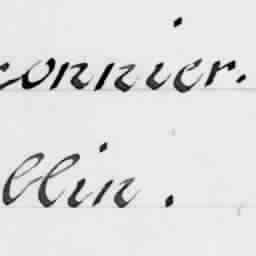 connier.
llin.